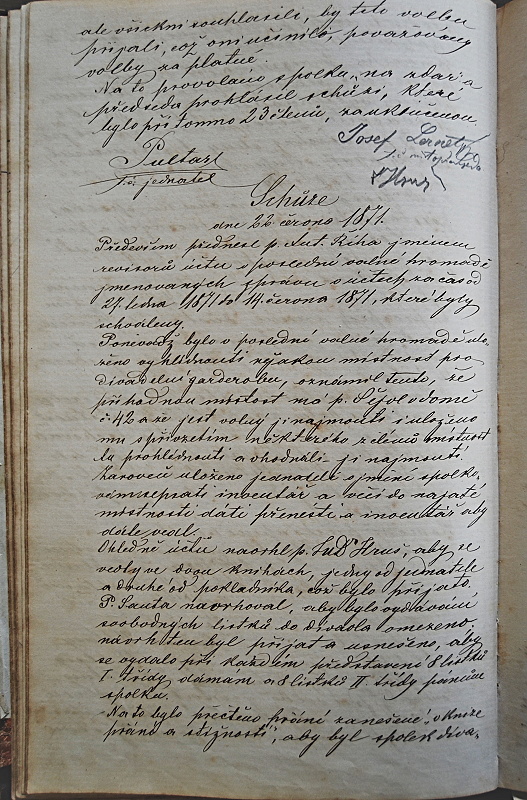 ale všickni souhlasili, by tuto volbu
přijali, což oni učinili, považovány
volby za platné.
Na to provoláno spolku „na zdar“ a
předseda prohlásil schůzi, které
bylo přítomno 23 členů, za ukončenou
Josef
Pultar
t. č. jednatel
Hruš
Schůze
dne 22. června 1871.
Především přednesl p. Ant. Říha jménem
revisorů účtu v poslední valné hromadě
jmenovaných zprávu o účtech za čas od
27. ledna 1871 do 14. června 1871, které byly
schváleny
Poněvadž bylo v poslední valné hromadě ulo-
ženo vyhlídnouti nějakou místnost pro
divadelní garderobu, oznámil tento, že
příhodnou místost má p. v domě
č. 42 a že jest volný ji najmouti i uloženo
mu s přivzetím některého z členů místnost
tu prohlédnouti a vhodnáli ji najmouti.
Zároveň uloženo jednateli o jmění spolko-
vém sepsati inventář a věci do najaté
místnosti dáti přenésti a inventář aby
dále vedl.
Ohledně účtů navrhl p. Lud. Hruš, aby se
vedly ve dvou knihách, jedny od jednatele
a druhé od pokladníka, což bylo přijato.
P. Šanta navrhoval, aby bylo vydávání
svobodných lístků do divadla omezeno,
návrh ten byl přijat a usnešeno, aby
se vydalo při každém představení 8 lístků
I. třídy dámám a 8 lístků II. třídy pánům
spolku.
Na to bylo přečteno přání zanešené „v knize
přání a stížností“, aby byl spolek diva-